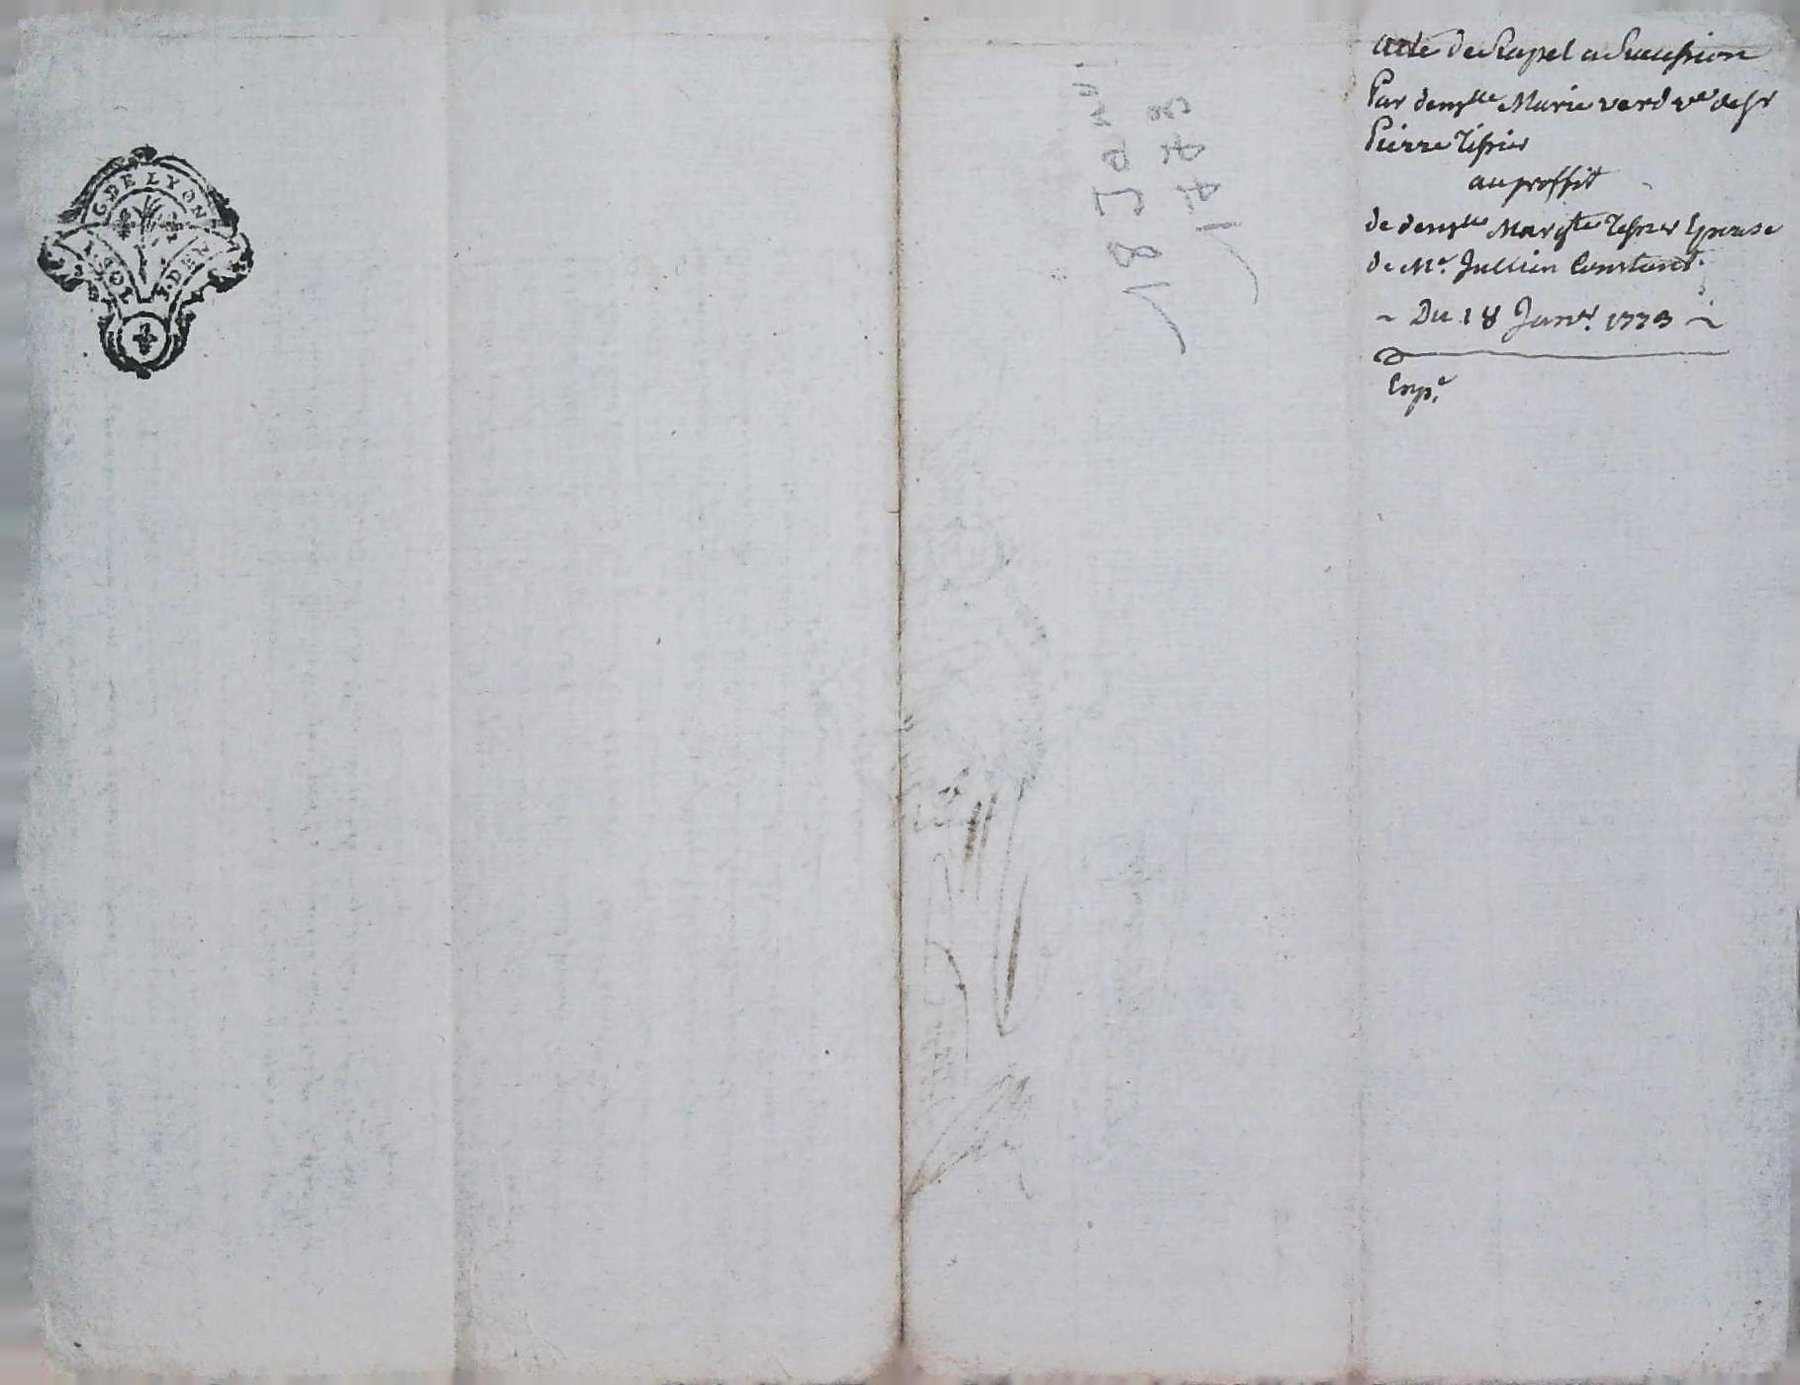 G. DE LYON
1. SOL 4. DEN
18 Janv.
1773
Acte de Rapel a Sucession
Par demlle Marie verd ve de sr
Pierre Tissier
au proffit
de demlle Margte Tissier Epouse
de Me. Jullien Constant.
~ Du 18 Janvr. 1773 ~
Exp.e